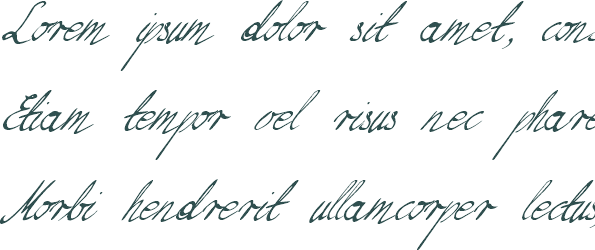 Lorem ipsum dolor sit amet, cons
Etiam tempor vel risus nec phare
Morbi hendrerit ullamcorper lectus,